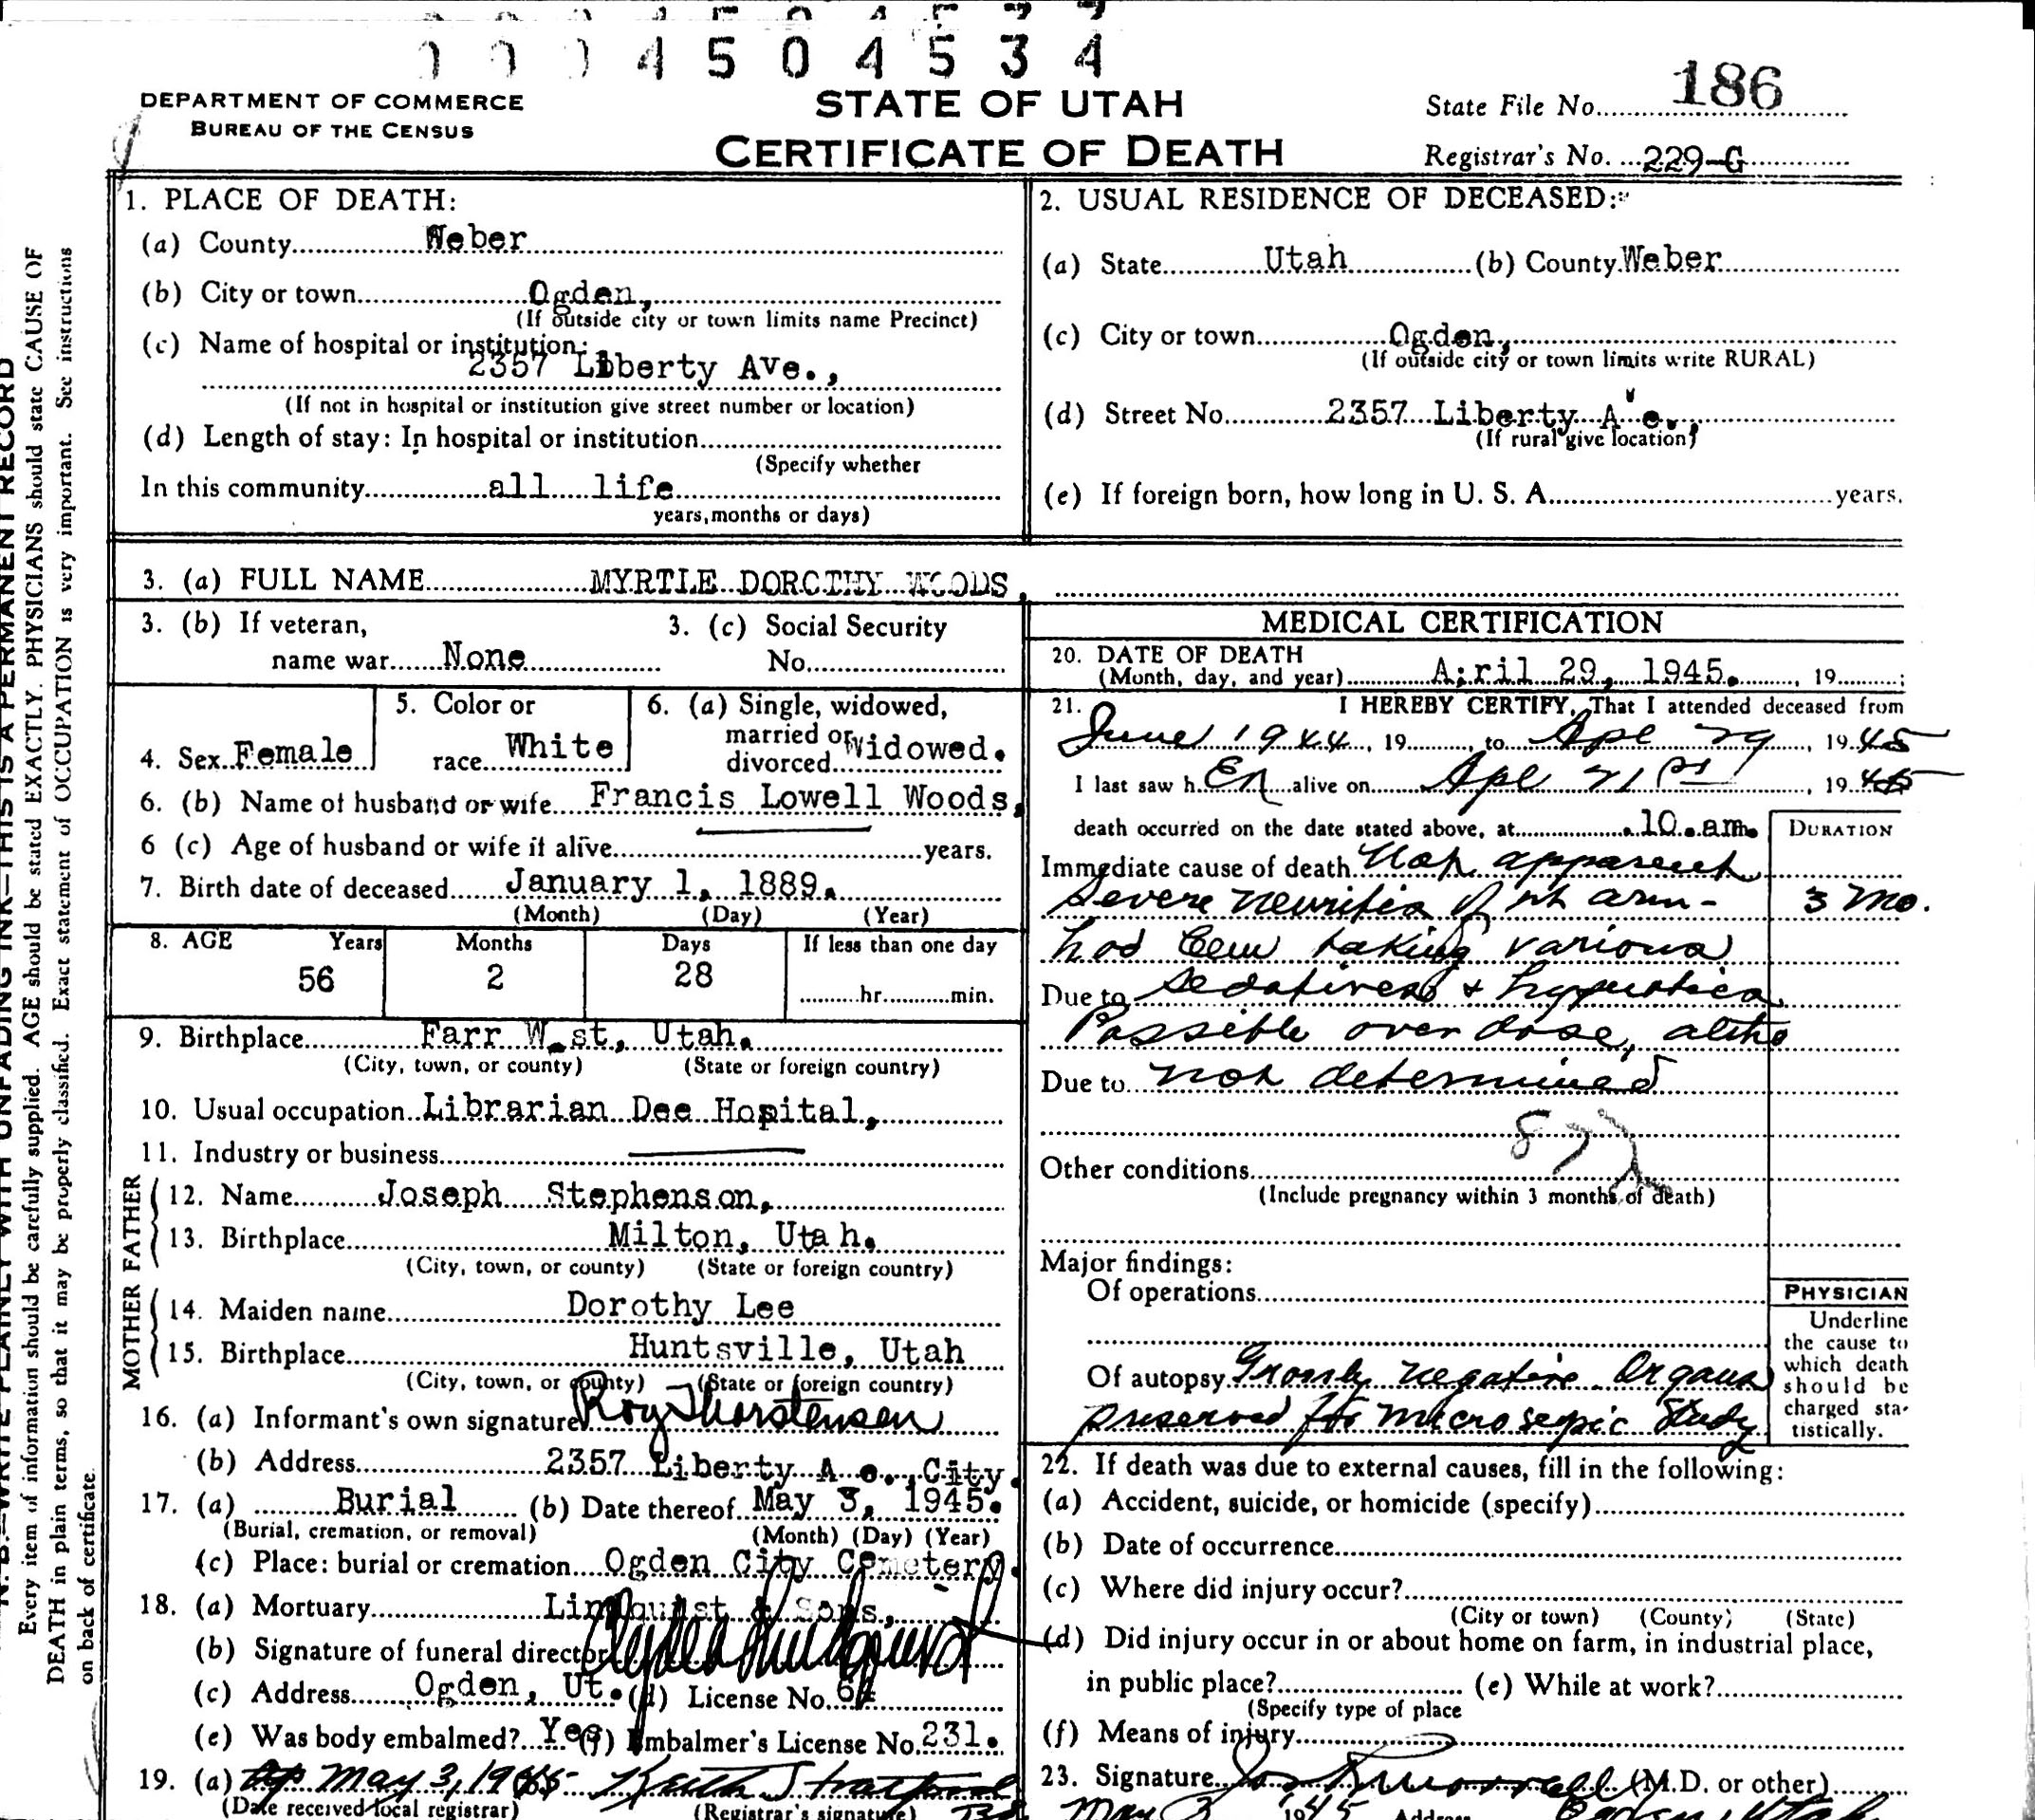 0004504534
DEPARTMENT OF COMMERCE
BUREAU OF THE CENSUS
STATE OF UTAH
CERTIFICATE OF DEATH
State File No. 186
Registrar's No. 229-G
1. PLACE OF DEATH:
(a) County Weber
(b) City or town Ogden,
(If outside city or town limits name Precinct)
(c) Name of hospital or institution:
2357 Liberty Ave.,
(If not in hospital or institution give street number or location)
(d) Length of stay: In hospital or institution
(Specify whether
In this community all life
years, months or days)
2. USUAL RESIDENCE OF DECEASED:
(a) State Utah (b) County Weber
(c) City or town Ogden,
(If outside city or town limits write RURAL)
(d) Street No. 2357 Liberty A've.,
(If rural give location)
(e) If foreign born, how long in U. S. A. years.
3. (a) FULL NAME MYRTLE DOROTHY WOODS.
3. (b) If veteran,
name war None
3. (c) Social Security
No.
4. Sex Female
5. Color or
race White
6. (a) Single, widowed,
married or
divorced Widowed.
6. (b) Name of husband or wife Francis Lowell Woods,
6 (c) Age of husband or wife if alive years.
7. Birth date of deceased January 1, 1889.
(Month) (Day) (Year)
8. AGE Years Months Days If less than one day
56 2 28 hr. min.
9. Birthplace Farr West, Utah.
(City, town, or county) (State or foreign country)
10. Usual occupation Librarian Dee Hospital,
11. Industry or business
FATHER
12. Name Joseph Stephenson,
13. Birthplace Milton, Utah.
(City, town, or county) (State or foreign country)
MOTHER
14. Maiden name Dorothy Lee
15. Birthplace Huntsville, Utah
(City, town, or county) (State or foreign country)
16. (a) Informant's own signature Roy Thorstensen
(b) Address 2357 Liberty A e., City.
17. (a) Burial (b) Date thereof May 3, 1945.
(Burial, cremation, or removal) (Month) (Day) (Year)
(c) Place: burial or cremation Ogden City Cemetery.
18. (a) Mortuary Lindquist & Sons,
(b) Signature of funeral director
(c) Address Ogden, Ut. (d) License No. 64
(e) Was body embalmed? Yes (f) Embalmer's License No. 231.
19. (a) May 3, 1945 Keith Stratford
(Date received local registrar) (Registrar's signature)
MEDICAL CERTIFICATION
20. DATE OF DEATH
(Month, day, and year) April 29, 1945. , 19 ;
21. I HEREBY CERTIFY, That I attended deceased from
June 1944, 19 , to Apl 29, 1945
I last saw h er alive on Apl 21st, 1945
death occurred on the date stated above, at 10 am.
DURATION
Immediate cause of death Not apparent
Severe neuritis of rt arm - 3 mo.
had been taking various
Due to sedatives & hypnotics
Possible over dose, altho
Due to not determined
Other conditions
(Include pregnancy within 3 months of death)
Major findings:
Of operations
Of autopsy Grossly negative. Organs
preserved for microscopic study
PHYSICIAN
Underline
the cause to
which death
should be
charged sta-
tistically.
22. If death was due to external causes, fill in the following:
(a) Accident, suicide, or homicide (specify)
(b) Date of occurrence
(c) Where did injury occur?
(City or town) (County) (State)
(d) Did injury occur in or about home on farm, in industrial place,
in public place? (e) While at work?
(Specify type of place
(f) Means of injury
23. Signature (M.D. or other)
May 1945 Address Ogden, Utah
N. B.—WRITE PLAINLY WITH UNFADING INK—THIS IS A PERMANENT RECORD
Every item of information should be carefully supplied. AGE should be stated EXACTLY. PHYSICIANS should state CAUSE OF
DEATH in plain terms, so that it may be properly classified. Exact statement of OCCUPATION is very important. See instructions
on back of certificate.